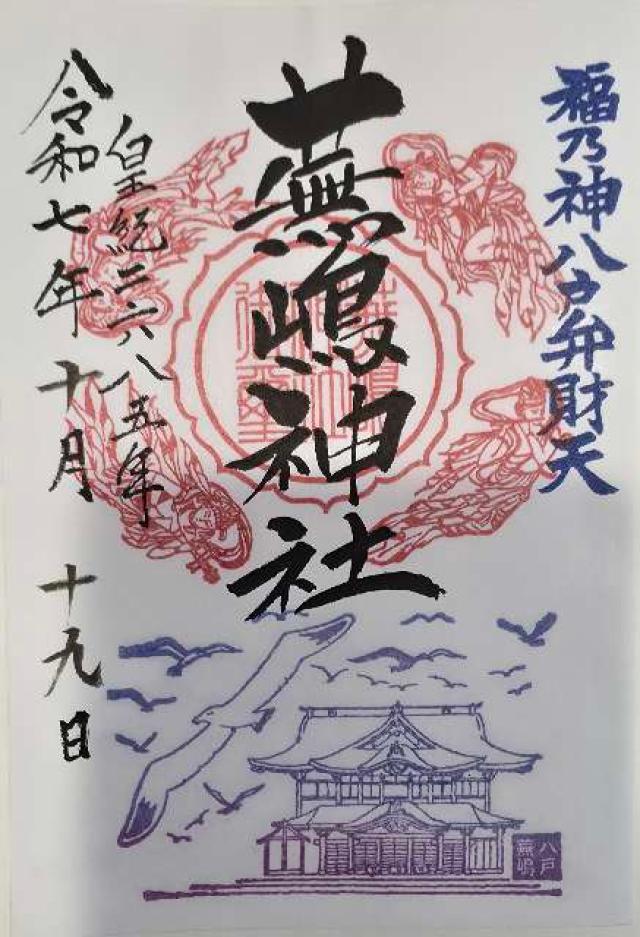 福乃神八戸弁財天
蕪嶋神社
皇紀二六八五年
令和七年十月十九日
八戸
蕪嶋